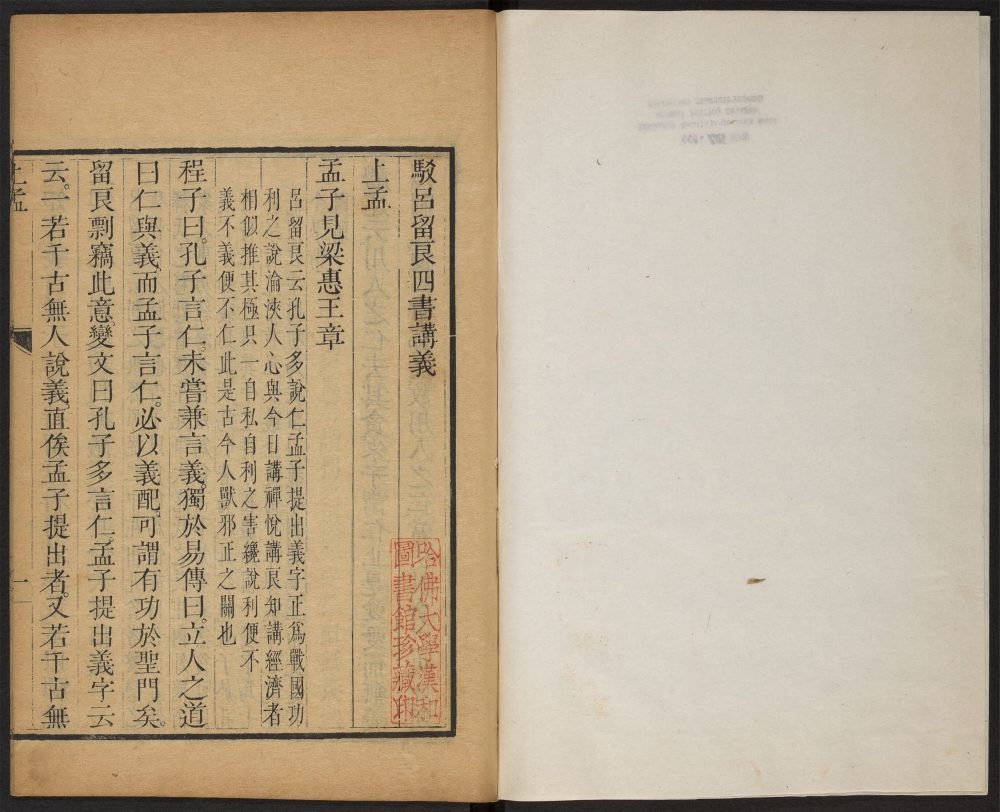 駁呂留良四書講義
上孟
孟子見梁惠王章
呂留良云孔子多說仁孟子提出義字正爲戰國功
利之說淪浹人心與今日講禪悅講良知講經濟者
相似推其極只一自私自利之害纔說利便不
義不義便不仁此是古今人獸邪正之關也
程子曰。孔子言仁。未嘗兼言義。獨於易傳曰。立人之道
曰仁與義。而孟子言仁。必以義配。可謂有功於聖門矣。
留良剽竊此意。變文曰孔子多言仁。孟子提出義字云
云。一若千古無人說義。直俟孟子提出者。又若千古無
上孟
一
哈佛大學漢和
圖書館珍藏印